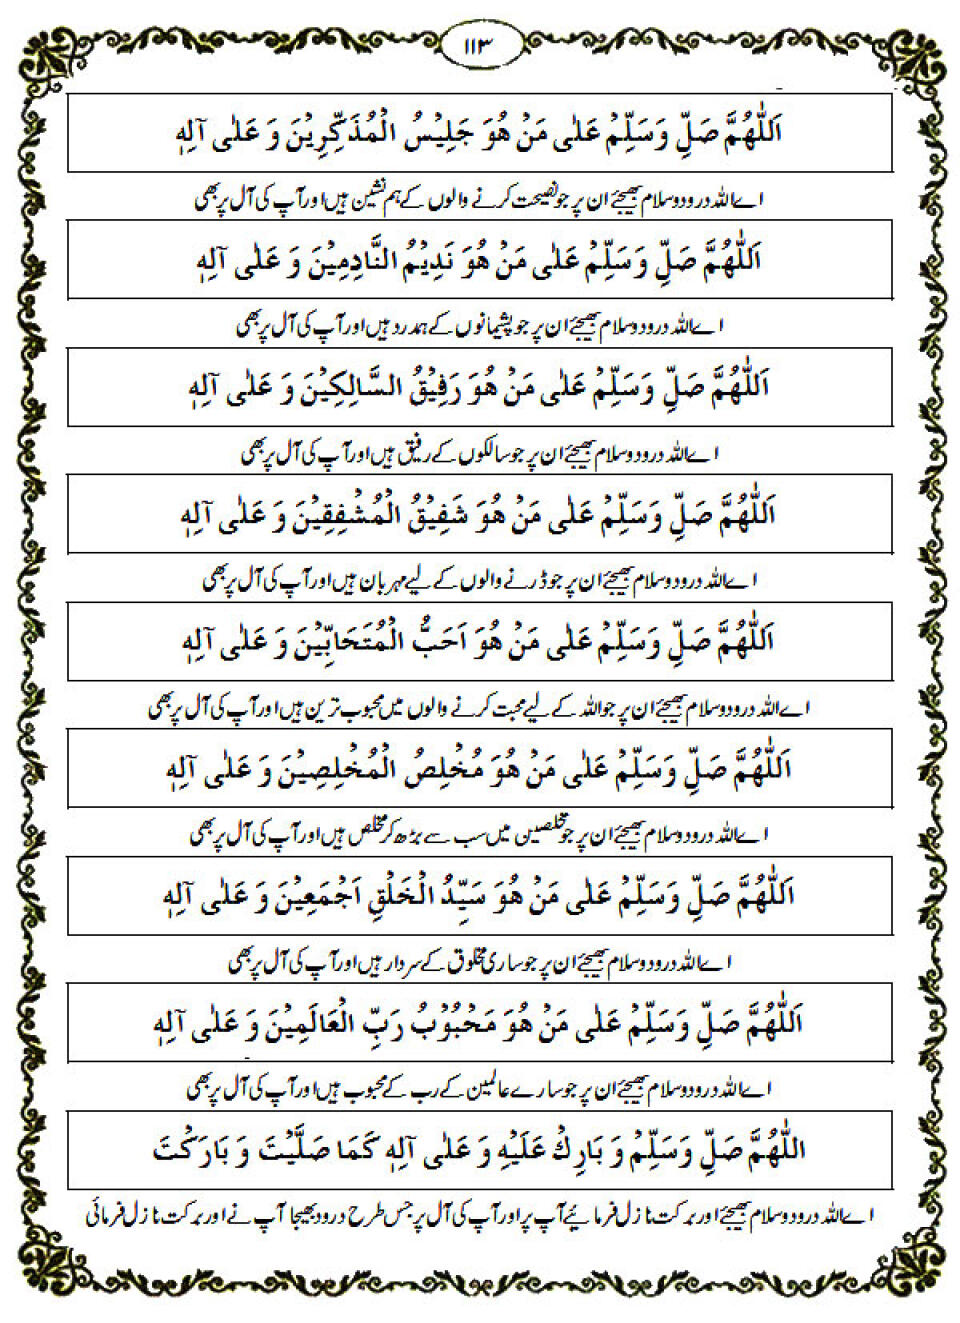 ١١٣
اَللّٰهُمَّ صَلِّ وَسَلِّمْ عَلٰى مَنْ هُوَ جَلِيْسُ الْمُذَكِّرِيْنَ وَ عَلٰى آلِهٖ
اے اللہ درود و سلام بھیجئے ان پر جو نصیحت کرنے والوں کے ہم نشین ہیں اور آپ کی آل پر بھی
اَللّٰهُمَّ صَلِّ وَسَلِّمْ عَلٰى مَنْ هُوَ نَدِيْمُ النَّادِمِيْنَ وَ عَلٰى آلِهٖ
اے اللہ درود و سلام بھیجئے ان پر جو پشیمانوں کے ہمدرد ہیں اور آپ کی آل پر بھی
اَللّٰهُمَّ صَلِّ وَسَلِّمْ عَلٰى مَنْ هُوَ رَفِيْقُ السَّالِكِيْنَ وَ عَلٰى آلِهٖ
اے اللہ درود و سلام بھیجئے ان پر جو سالکوں کے رفیق ہیں اور آپ کی آل پر بھی
اَللّٰهُمَّ صَلِّ وَسَلِّمْ عَلٰى مَنْ هُوَ شَفِيْقُ الْمُشْفِقِيْنَ وَ عَلٰى آلِهٖ
اے اللہ درود و سلام بھیجئے ان پر جو ڈرنے والوں کے لیے مہربان ہیں اور آپ کی آل پر بھی
اَللّٰهُمَّ صَلِّ وَسَلِّمْ عَلٰى مَنْ هُوَ اَحَبُّ الْمُتَحَابِّيْنَ وَ عَلٰى آلِهٖ
اے اللہ درود و سلام بھیجئے ان پر جو اللہ کے لیے محبت کرنے والوں میں محبوب ترین ہیں اور آپ کی آل پر بھی
اَللّٰهُمَّ صَلِّ وَسَلِّمْ عَلٰى مَنْ هُوَ مُخْلِصُ الْمُخْلِصِيْنَ وَ عَلٰى آلِهٖ
اے اللہ درود و سلام بھیجئے ان پر جو مخلصین میں سب سے بڑھ کر مخلص ہیں اور آپ کی آل پر بھی
اَللّٰهُمَّ صَلِّ وَسَلِّمْ عَلٰى مَنْ هُوَ سَيِّدُ الْخَلْقِ اَجْمَعِيْنَ وَ عَلٰى آلِهٖ
اے اللہ درود و سلام بھیجئے ان پر جو ساری مخلوق کے سردار ہیں اور آپ کی آل پر بھی
اَللّٰهُمَّ صَلِّ وَسَلِّمْ عَلٰى مَنْ هُوَ مَحْبُوْبُ رَبِّ الْعَالَمِيْنَ وَ عَلٰى آلِهٖ
اے اللہ درود و سلام بھیجئے ان پر جو سارے عالمین کے رب کے محبوب ہیں اور آپ کی آل پر بھی
اللّٰهُمَّ صَلِّ وَسَلِّمْ وَ بَارِكْ عَلَيْهِ وَ عَلٰى آلِهٖ كَمَا صَلَّيْتَ وَ بَارَكْتَ
اے اللہ درود و سلام بھیجئے اور برکت نازل فرمائیے آپ پر اور آپ کی آل پر جس طرح درود بھیجا آپ نے اور برکت نازل فرمائی